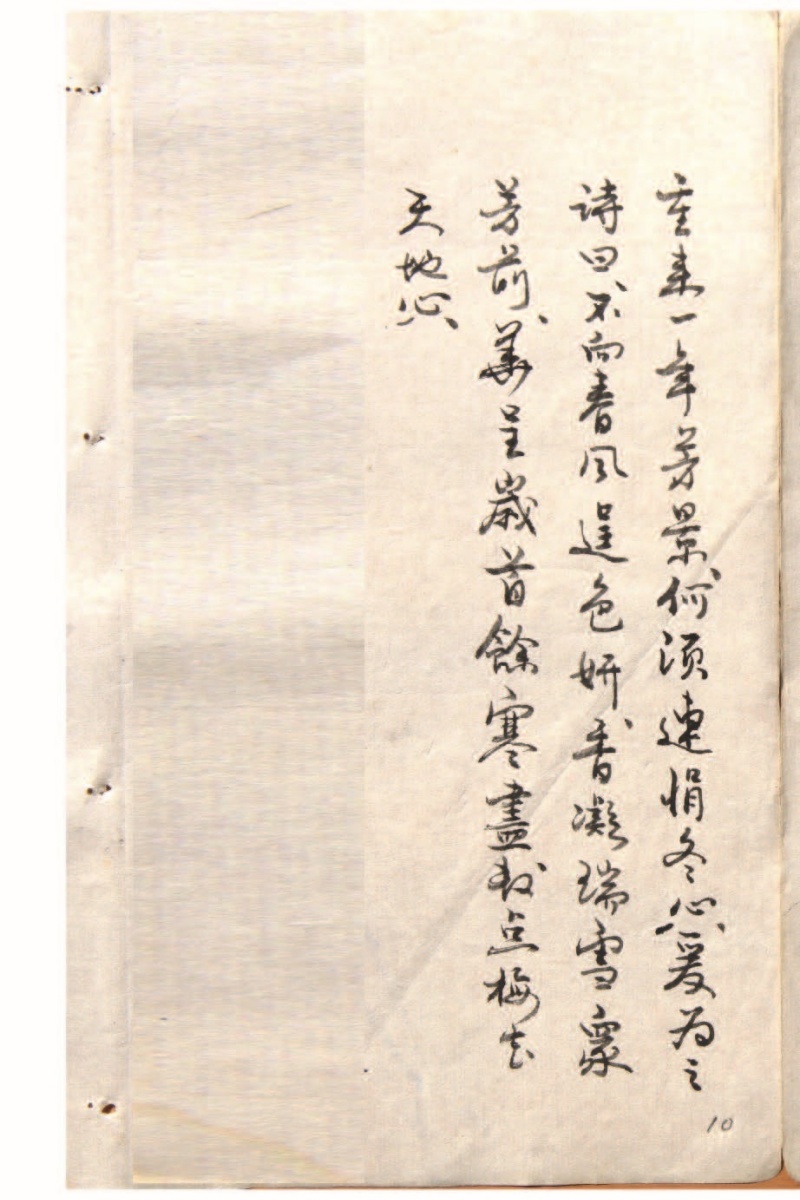 重来一年芳景何須連悁冬心爰为之
詩曰不向春风逞色妍香凝瑞雪衆
芳前華呈歲首餘寒盡数点梅花
天地心
10